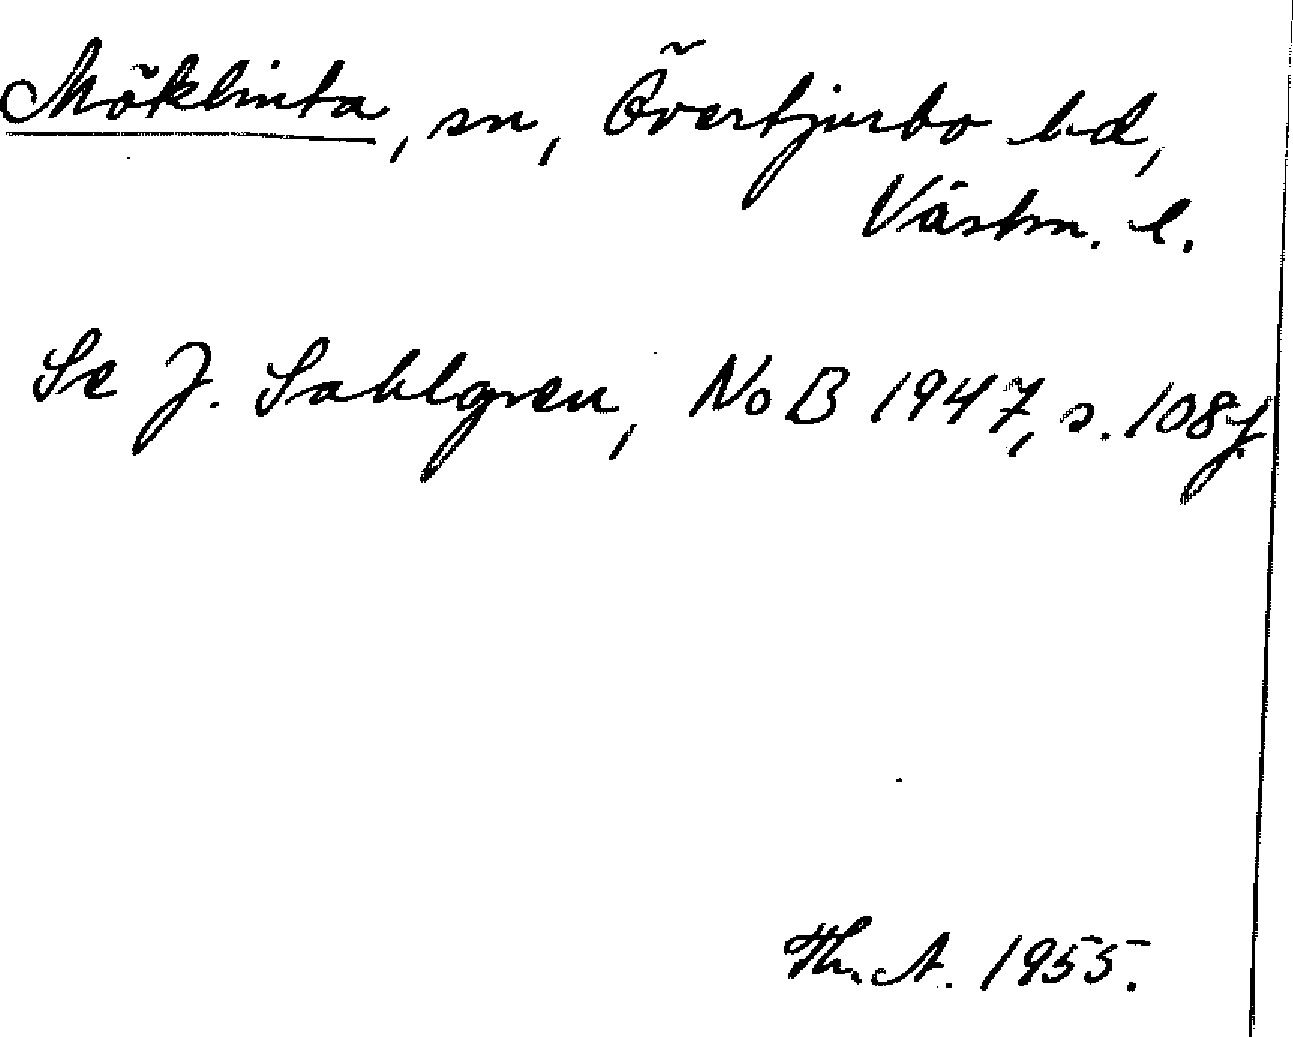 Möklinta, sn, Övertjurbo hd,
Västm. l.
Se J. Sahlgren, NoB 1947, s. 108f.
Th. A. 1955.